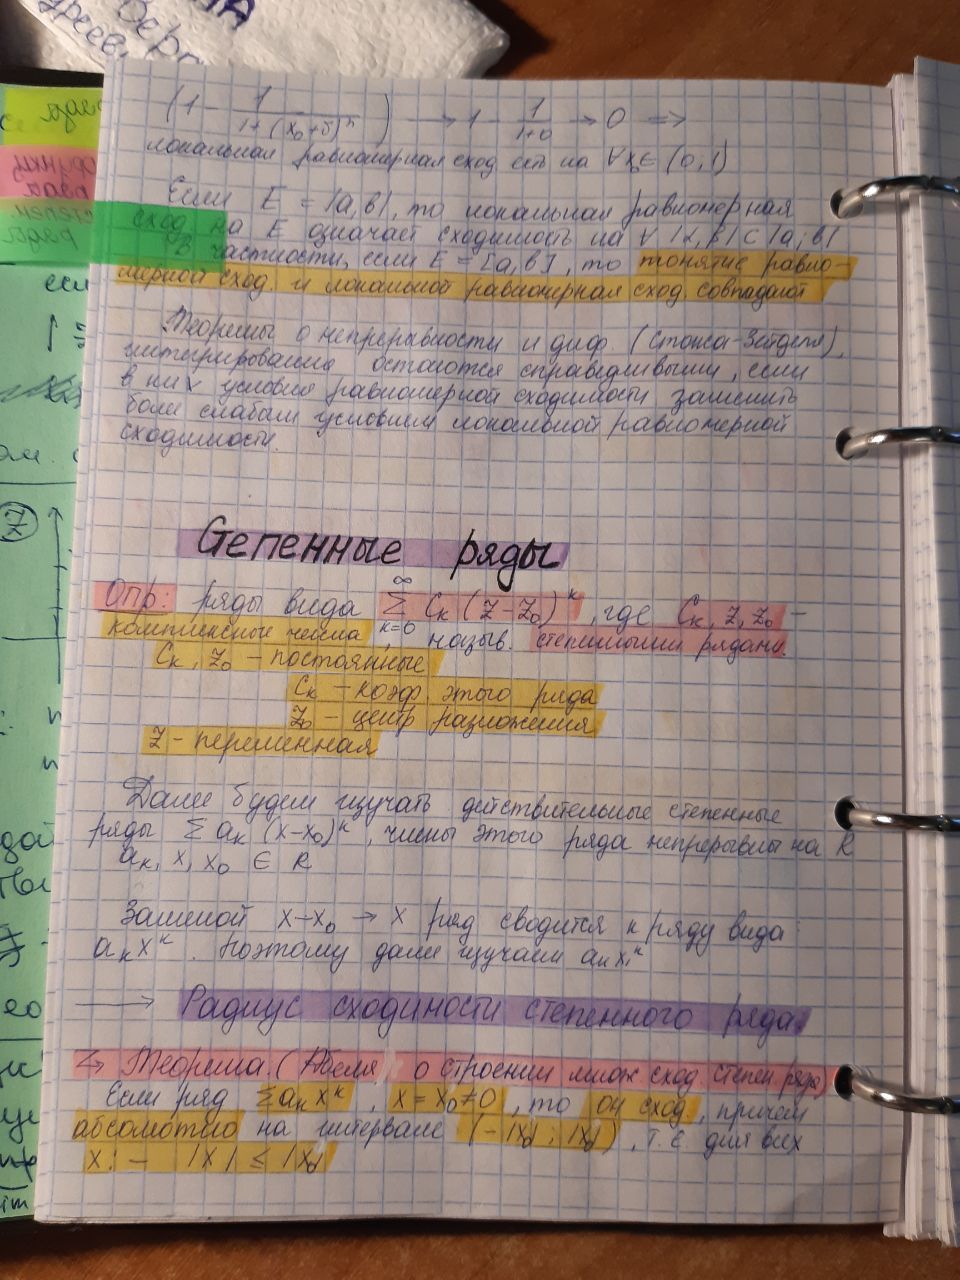 (1 - 1/(1+(x₀+δ)ⁿ)) → 1 - 1/(1+0) → 0 =>
локальная равномерная сход есть на ∀x₀∈(0,1)
Если E = |a,b|, то локальная равномерная
сход. на E означает сходимость на ∀ |α,β| ⊂ |a;b|
В частности, если E = [a,b], то понятие равно-
мерной сход. и локальной равномерная сход. совпадают
Теоремы о непрерывности и диф. (Стокса-Зейделя),
интегрирование остаются справедливыми, если
в них условия равномерной сходимости заменить
боле слабым условием локальной равномерной
сходимости.
Степенные ряды
Опр: ряды вида ∞ Σ k=0 Cₖ(z-z₀)ᵏ, где Cₖ, z, z₀ -
комплексные числа, назыв. степенными рядами.
Cₖ, z₀ - постоянные
Cₖ - коэф. этого ряда
z₀ - центр разложения
z - переменная
Далее будем изучать действительные степенные
ряды Σ aₖ (x-x₀)ᵏ, члены этого ряда непрерывны на R
aₖ, x, x₀ ∈ R
Заменой x-x₀ → x ряд сводится к ряду вида
aₖxᵏ. Поэтому далее изучаем aₖxᵏ
→ Радиус сходимости степенного ряда
Теорема: (Абеля о строении множ сход. степен ряда)
Если ряд Σaₖxᵏ, x = x₀≠0, то он сход., причем
абсолютно на интервале (-|x₀|; |x₀|), т.е для всех
x: - |x| ≤ |x₀|